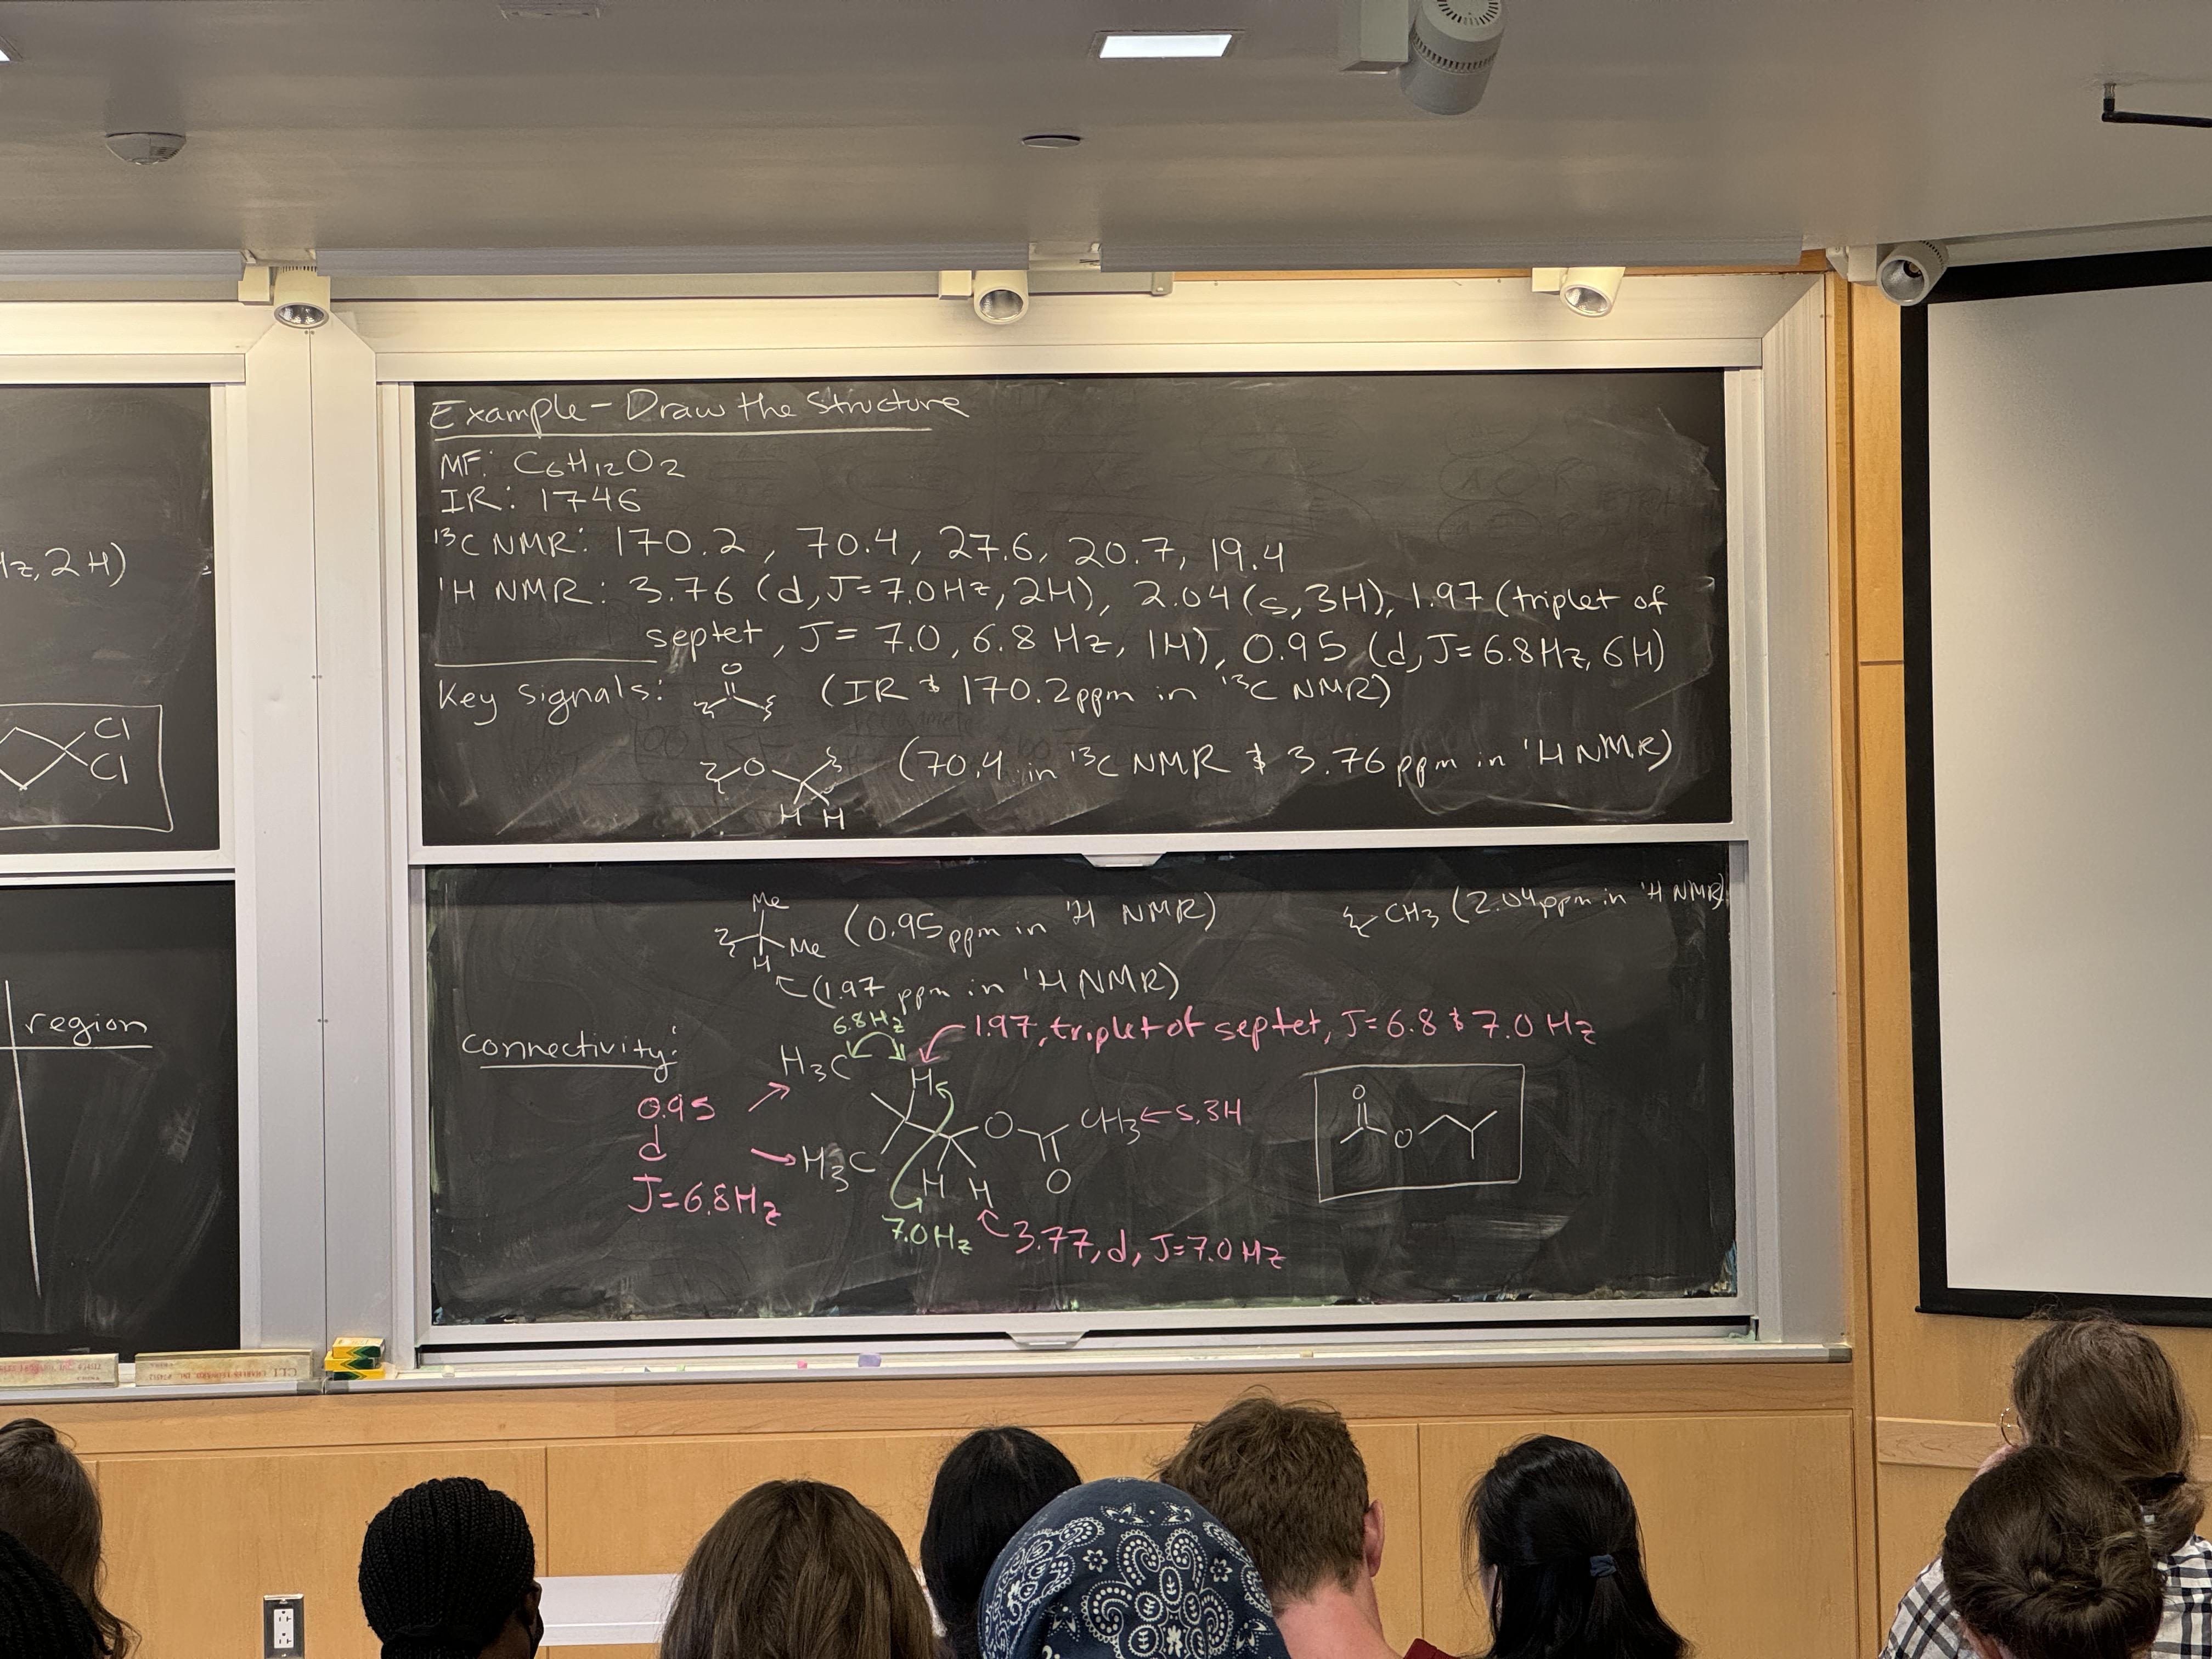 Hz, 2H)
Cl
Cl
region
Example - Draw the Structure
MF: C6H12O2
IR: 1746
13C NMR: 170.2, 70.4, 27.6, 20.7, 19.4
1H NMR: 3.76 (d, J=7.0Hz, 2H), 2.04 (s, 3H), 1.97 (triplet of
septet, J= 7.0, 6.8 Hz, 1H), 0.95 (d, J=6.8Hz, 6H)
Key signals: O (IR & 170.2ppm in 13C NMR)
O (70.4 in 13C NMR & 3.76 ppm in 1H NMR)
H H
Me
Me (0.95 ppm in 1H NMR)
H
(1.97 ppm in 1H NMR)
CH3 (2.04ppm in 1H NMR)
connectivity:
6.8Hz
1.97, triplet of septet, J=6.8 & 7.0 Hz
H3C
H
0.95
d
J=6.8Hz
H3C
O
CH3 ← s, 3H
O
H H
7.0Hz
3.77, d, J=7.0Hz
O
O